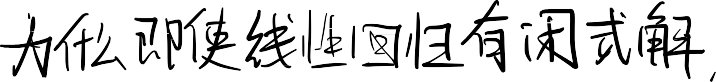 为什么即使线性回归有闭式解，